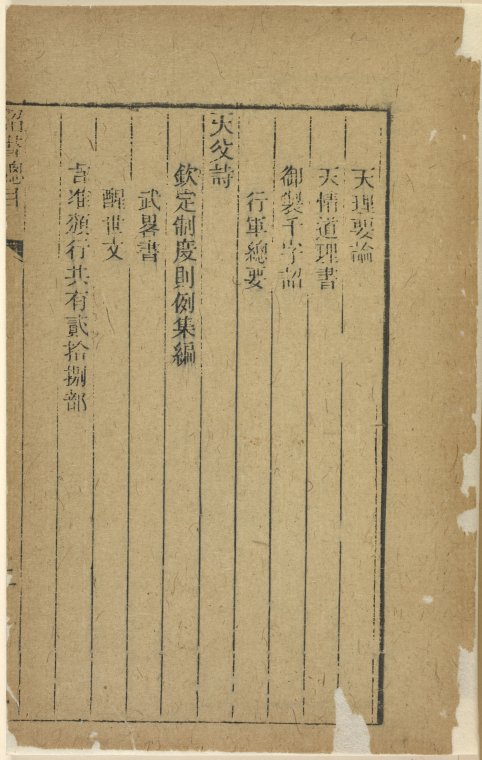 天理要論
天情道理書
御製千字詔
行軍總要
天父詩
欽定制度則例集編
武畧書
醒世文
旨准頒行共有貳拾捌部
詔書總目